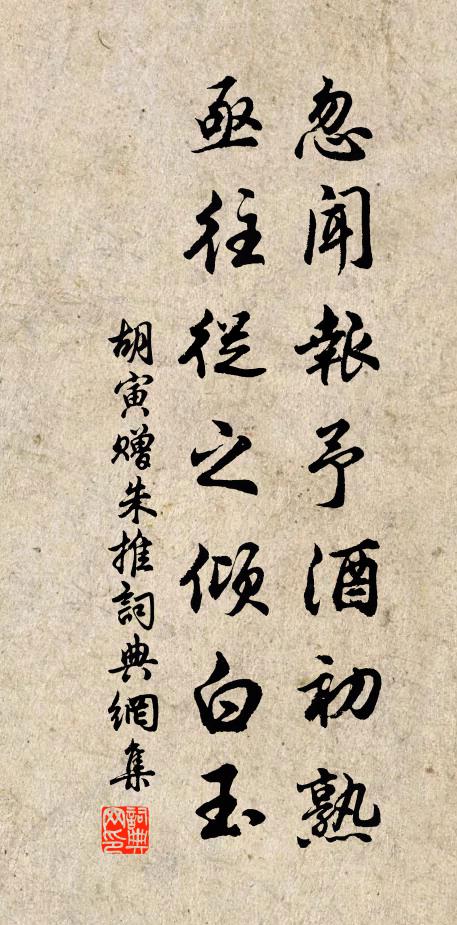 忽闻報予酒初熟
亟往從之倾白玉
胡寅赠朱推詞典網集
詞典网印